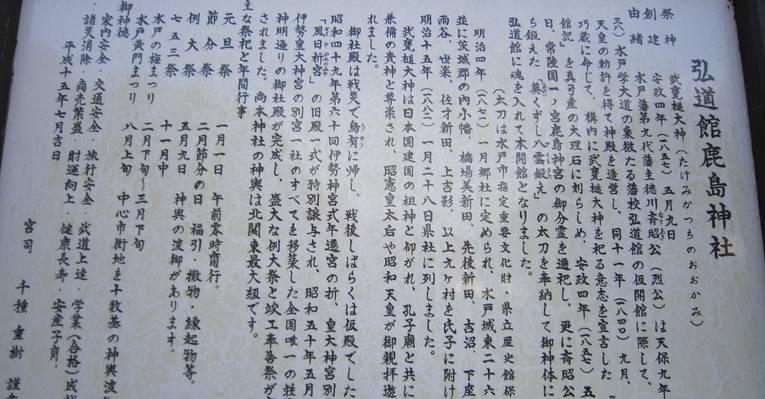 弘道館鹿島神社
祭神 武甕槌大神(たけみかつちのおおかみ)
創建 安政四年(一八五七)五月九日
由緒 水戸藩第九代藩主徳川斉昭公(烈公)は天保九年
三八)水戸学大道の象徴たる藩校弘道館の仮開館に際して、
天皇の勅許を得て神殿を造営し、同十一年(一八四〇)九月、
巧蔵に命じて、構内に武甕槌大神を祀る意志を宣言した
館記」を真弓産の大理石に刻らしめ、安政四年(一八五七)五
日、常陸国一ノ宮鹿島神宮の御分霊を遷祀し、更に斉昭公
ら鍛えた「葵くずし八雲鍛え」の太刀を奉納して御神体に
弘道館に魂を入れて本開館となりました。
(太刀は水戸市指定重要文化財・県立歴史館保
明治四年(一八七一)一月郷社に定められ、水戸城東二十六
並に茨城郡の内小幡、橋場美新田、先後新田、古沼、下座
雨谷、世楽、佐才新田、上吉影、以上九ヶ村を氏子に附け
明治十五年(一八八二)一月二十八日県社に列しました。
武甕槌大神は日本国建国の祖神と仰がれ、孔子廟と共に
兼備の貴神と尊崇され、昭憲皇太后や昭和天皇が御親拝遊
れました。
御社殿は戦災で烏有に帰し、戦後しばらくは仮殿でした
昭和四十九年第六十回伊勢神宮式年遷宮の折、皇大神宮別
「風日祈宮」の旧殿一式が特別譲与され、昭和五十年五月
伊勢皇大神宮の別宮一社のすべてを移築した全国唯一の社
神明造りの御社殿が完成し、盛大な例大祭と竣工奉善祭が
されました。尚本神社の神輿は北関東最大級です。
主な祭祀と年間行事
元旦祭 一月一日 午前零時齋行。
節分祭 二月節分の日 福引・撒物・縁起物等。
例大祭 五月九日 神輿の渡御があります。
七五三祭 十一月中
水戸の梅まつり 二月下旬〜三月下旬
水戸黄門まつり 八月上旬 中心市街地を十数基の神輿渡
御神徳
家内安全・交通安全・旅行安全・武道上達・学業(合格)成
諸災消除・商売繁盛・財運向上・健康長寿・安産子育
平成十五年七月吉日
宮司 千種重樹 謹